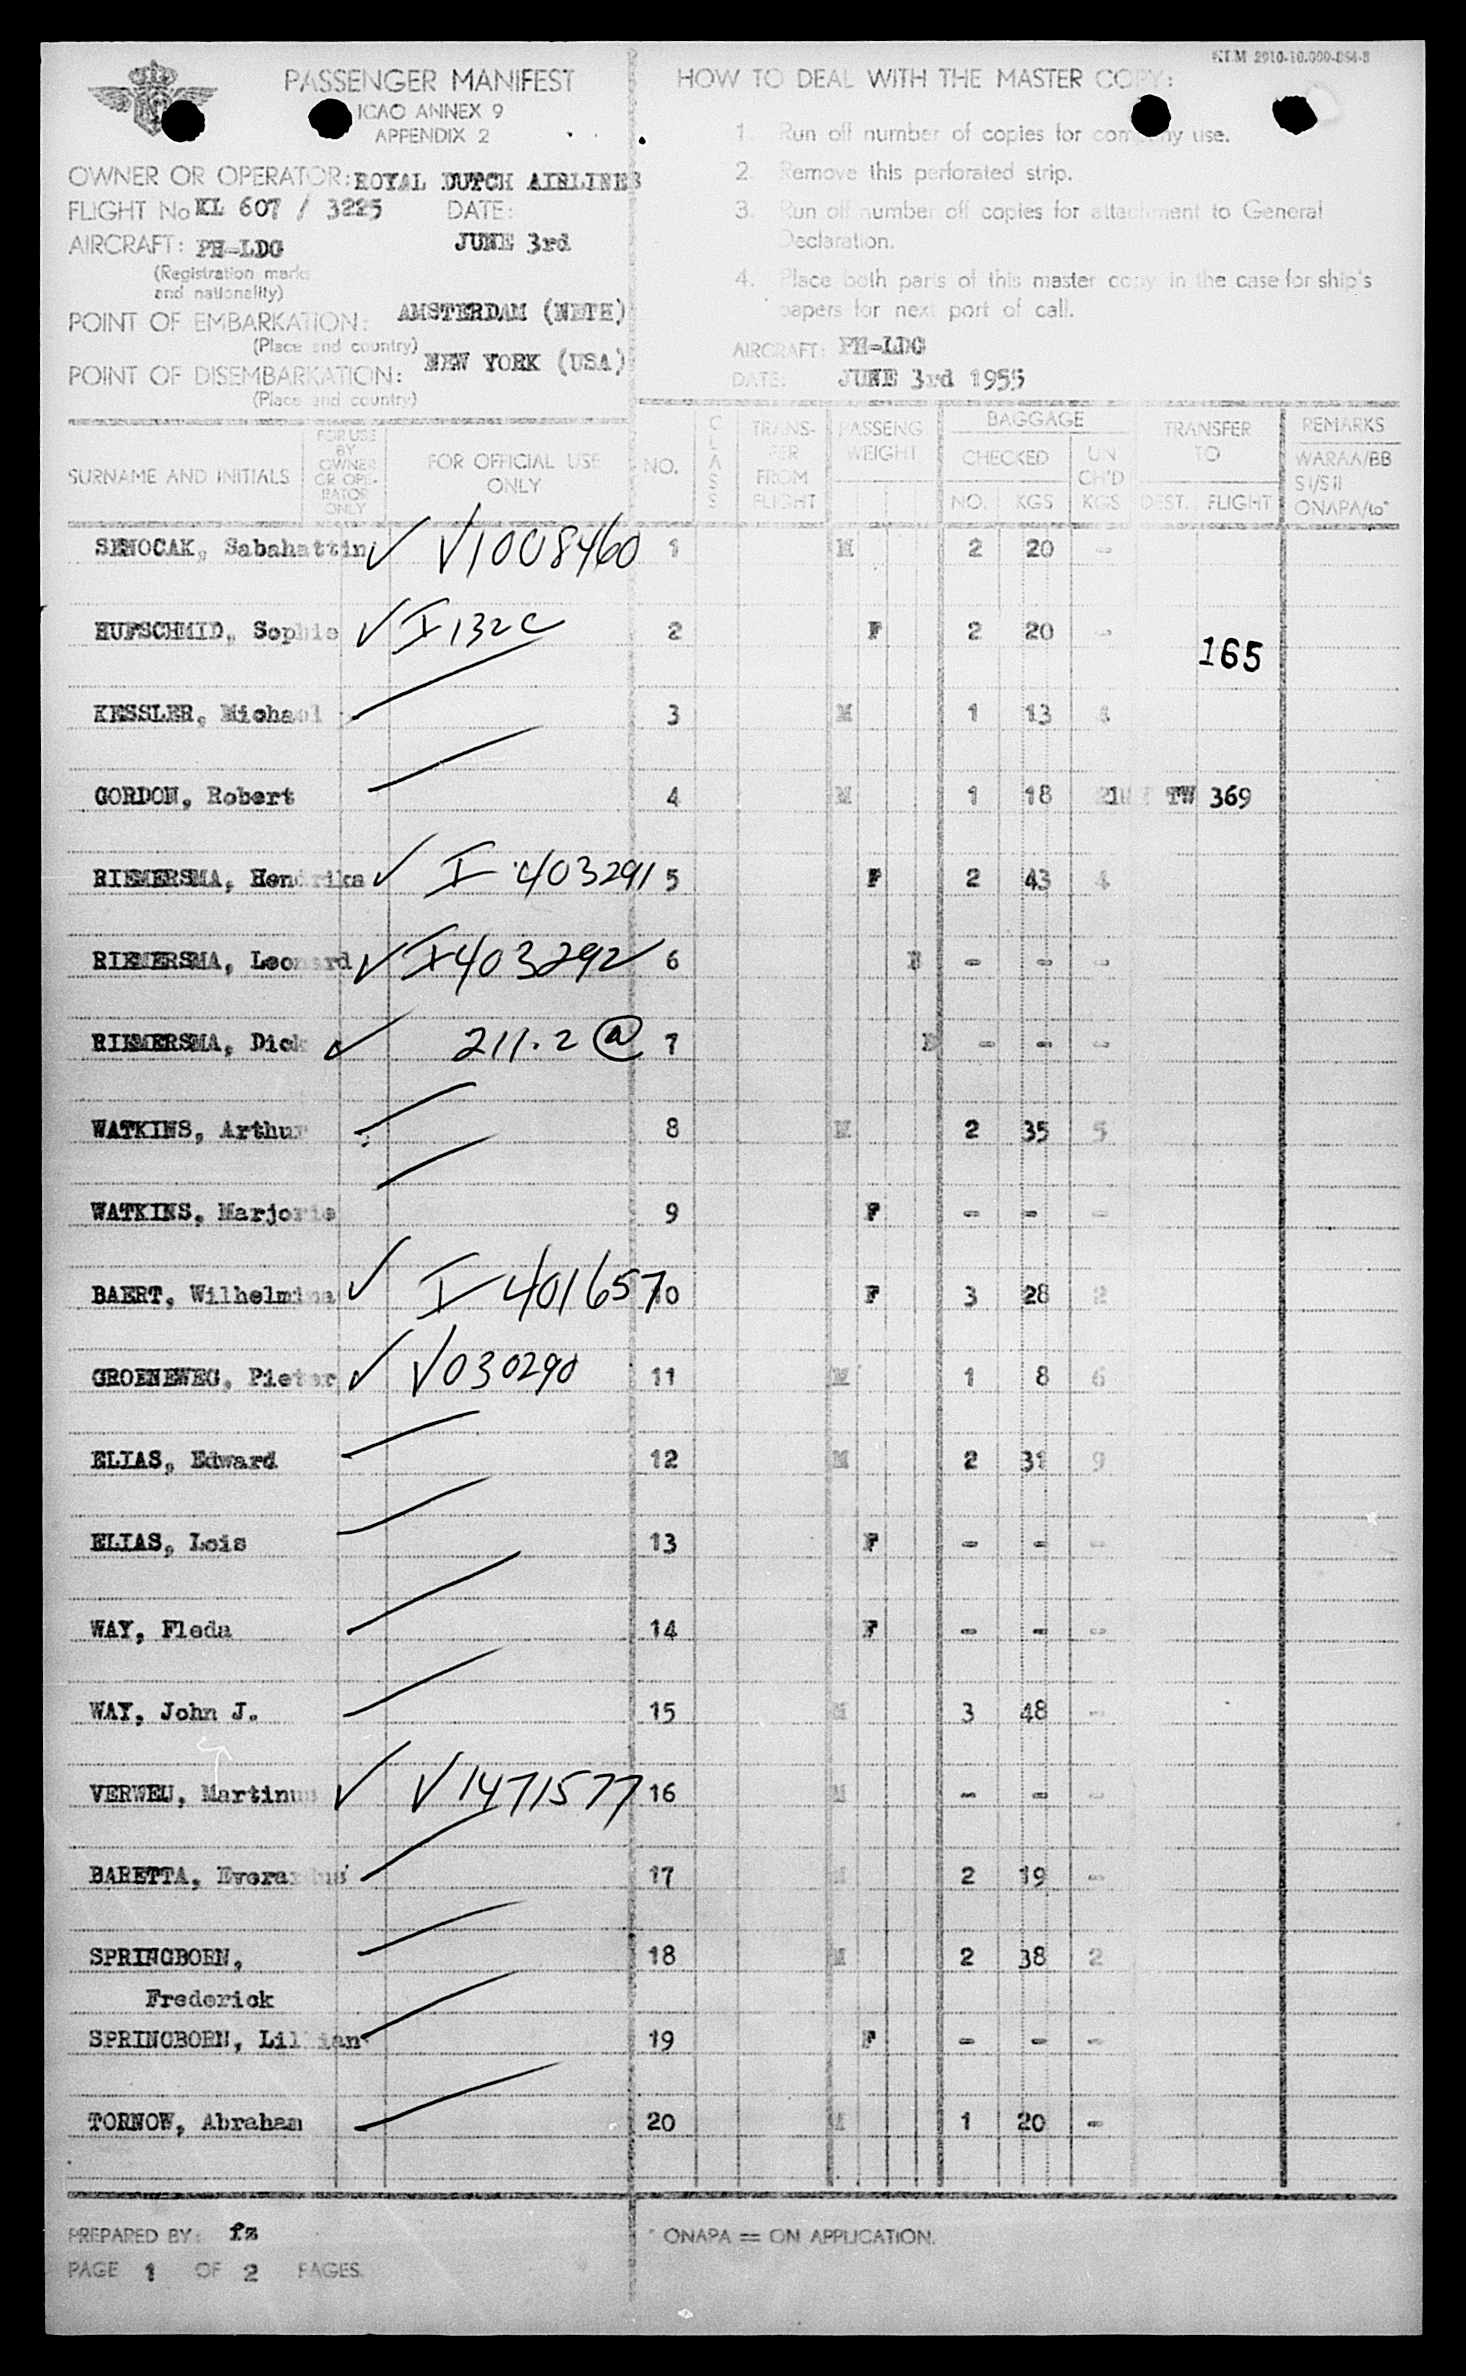 KLM 2910-10.000-854-8
PASSENGER MANIFEST
ICAO ANNEX 9
APPENDIX 2
OWNER OR OPERATOR: ROYAL DUTCH AIRLINES
FLIGHT No KL 607 / 3225 DATE:
AIRCRAFT: PH-LDG JUNE 3rd
(Registration marks
and nationality)
POINT OF EMBARKATION: AMSTERDAM (NETH)
(Place and country)
POINT OF DISEMBARKATION: NEW YORK (USA)
(Place and country)
HOW TO DEAL WITH THE MASTER COPY:
1. Run off number of copies for company use.
2. Remove this perforated strip.
3. Run off number off copies for attachment to General
Declaration.
4. Place both parts of this master copy in the case for ship's
papers for next port of call.
AIRCRAFT: PH-LDG
DATE: JUNE 3rd 1955
SURNAME AND INITIALS
FOR USE
BY
OWNER
OR OPE-
RATOR
ONLY
FOR OFFICIAL USE
ONLY
NO.
CLASS
TRANS-
FER
FROM
FLIGHT
PASSENG
WEIGHT
BAGGAGE
CHECKED
NO. KGS
UN
CH'D
KGS
TRANSFER
TO
DEST. FLIGHT
REMARKS
WARAA/BB
SI/SII
ONAPA/to*
SENOCAK, Sabahattin ✓ V1008460 1 M 2 20 -
HUFSCHMID, Sophie ✓ I 132C 2 F 2 20 -
165
KESSLER, Michael 3 M 1 13
GORDON, Robert 4 M 1 18 TW 369
RIEMERSMA, Hendrika ✓ I 403291 5 F 2 43 4
RIEMERSMA, Leonard ✓ I 403292 6 - - -
RIEMERSMA, Dick ✓ 211.2 @ 7 - - -
WATKINS, Arthur 8 M 2 35 5
WATKINS, Marjorie 9 F - - -
BAERT, Wilhelmina ✓ I 401657 10 F 3 28 2
GROENEWEG, Pieter ✓ V030290 11 M 1 8 6
ELIAS, Edward 12 M 2 31 9
ELIAS, Lois 13 F - - -
WAY, Fleda 14 F - - -
WAY, John J. 15 M 3 48 -
VERWEU, Martinus ✓ V1471577 16 M - - -
BARETTA, Everardus 17 M 2 19 -
SPRINGBORN, 18 M 2 38 2
Frederick
SPRINGBORN, Lillian 19 F - - -
TORNOW, Abraham 20 M 1 20 -
PREPARED BY: fz
* ONAPA = ON APPLICATION.
PAGE 1 OF 2 PAGES.